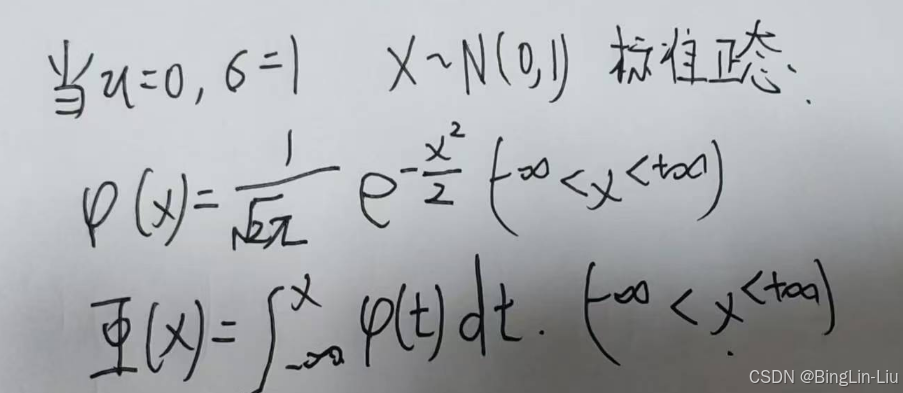 当μ=0, σ=1 X~N(0,1) 标准正态.
φ(x)=\frac{1}{\sqrt{2π}} e^{-\frac{x^2}{2}} (-∞<x<+∞)
Φ(x)=∫_{-∞}^{x} φ(t)dt. (-∞<x<+∞)
CSDN @BingLin-Liu